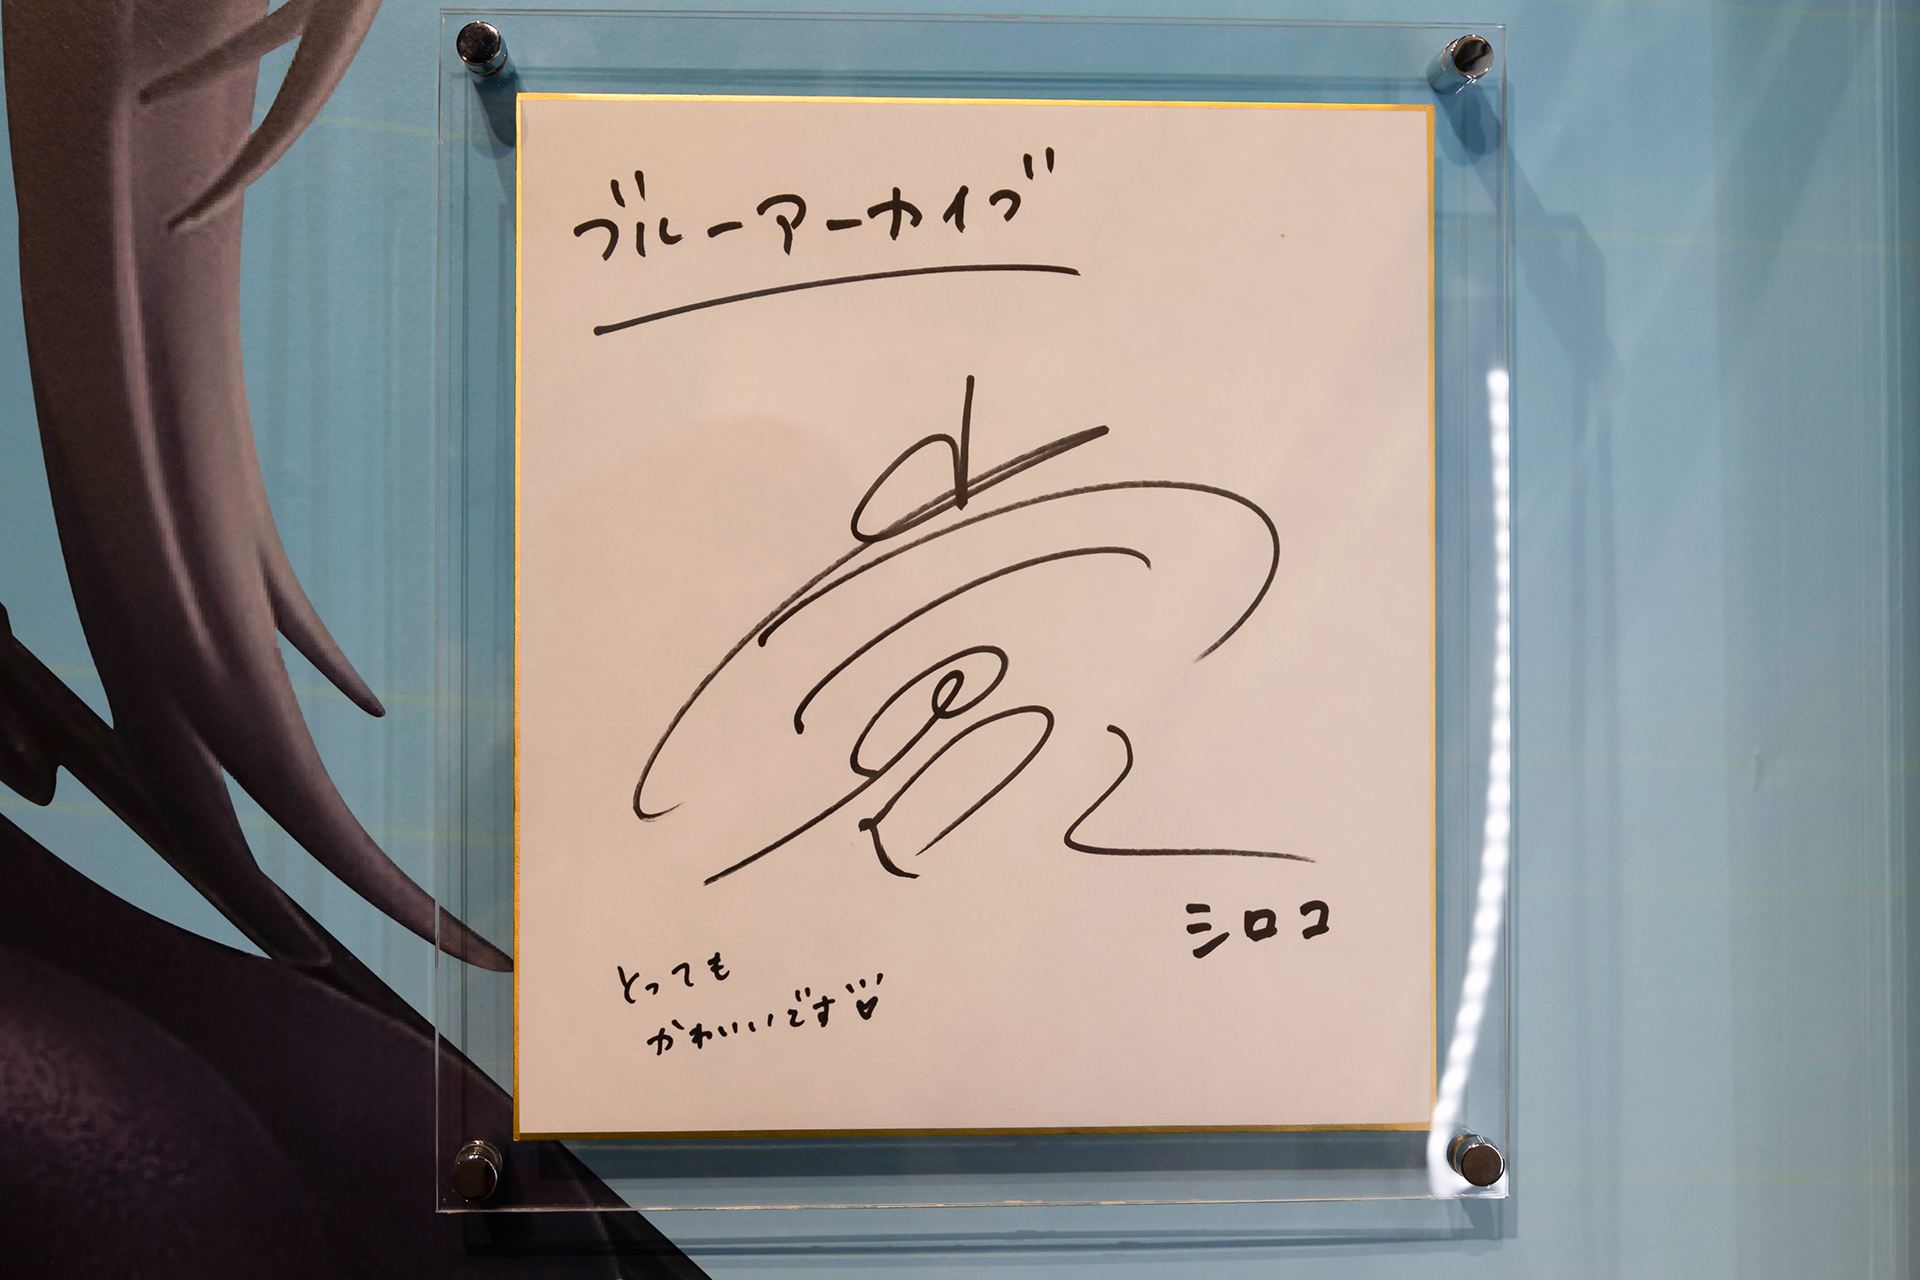 ブルーアーカイブ
シロコ
とっても
かわいいです♡